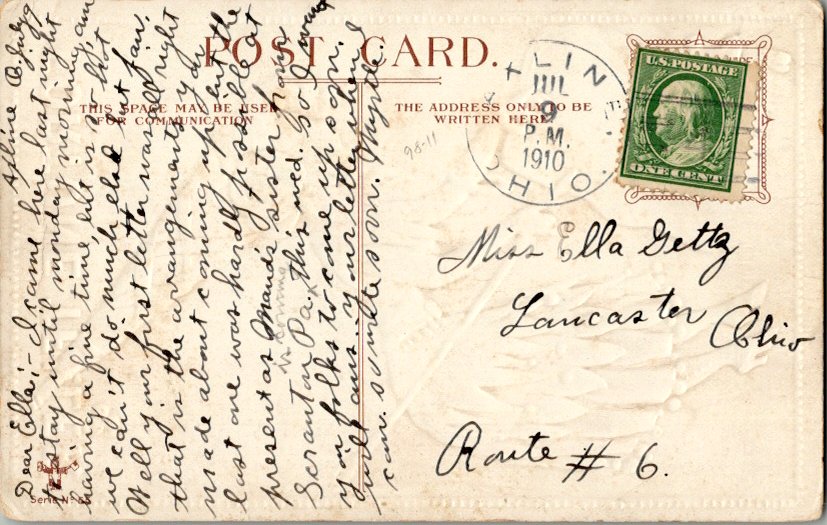 POST CARD.
THIS SPACE MAY BE USED
FOR COMMUNICATION
THE ADDRESS ONLY TO BE
WRITTEN HERE
98-11
TLIN
JUL
9
P.M.
1910
OHIO.
U.S. POSTAGE
ONE CENT
Miss Ella Gettz
Lancaster Ohio
Route # 6.
O. July 9
Dear Ella:- I came here last night
to stay until monday morning, am
having a fine time, but is so hot
we can't do much else but fan.
Well your first letter was all right
that is the arrangements you
made about coming up but the
last one was hardly possible at
present as Maud's sister from
is coming
Scranton Pa. this wed. So I want
you folks to come up soon.
Will ans. your letter when I
can. so write soon. Myrtle
Serie No.